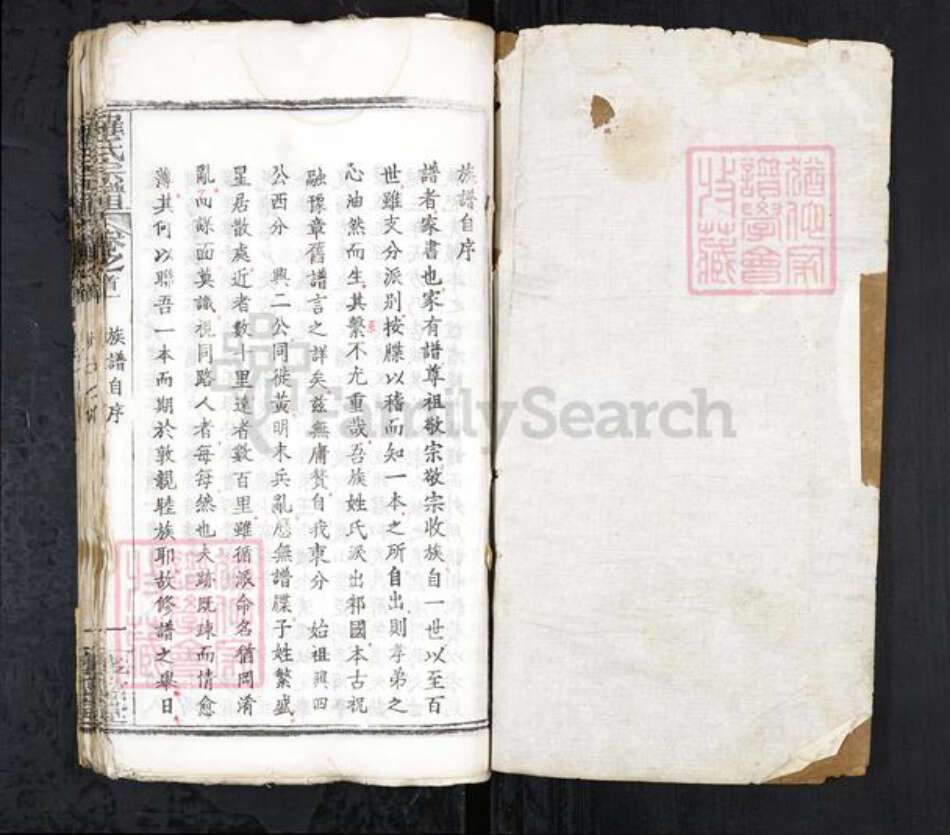 族譜自序
譜者家書也家有譜尊祖敬宗敬宗收族自一世以至百
世雖支分派別按牒以稽而知一本之所自出則孝弟之
心油然而生其繫不尤重哉吾族姓氏派出邾國本古祝
至
融豫章舊譜言之詳矣茲無庸贅自我東分 始祖興四
公西分 興二公同徙黃明末兵亂愿無譜牒子姓繁盛
星居散處近者數十里遠者數百里雖循派命名猶罔淆
亂而謀面莫識視同路人者每每然也夫跡既疎而情愈
薄其何以聯吾一本而期於敦親睦族耶故修譜之舉日
羅氏宗譜 卷之首一 族譜自序
猶他家
譜學會
收藏
猶他家
譜學會
收藏
FamilySearch